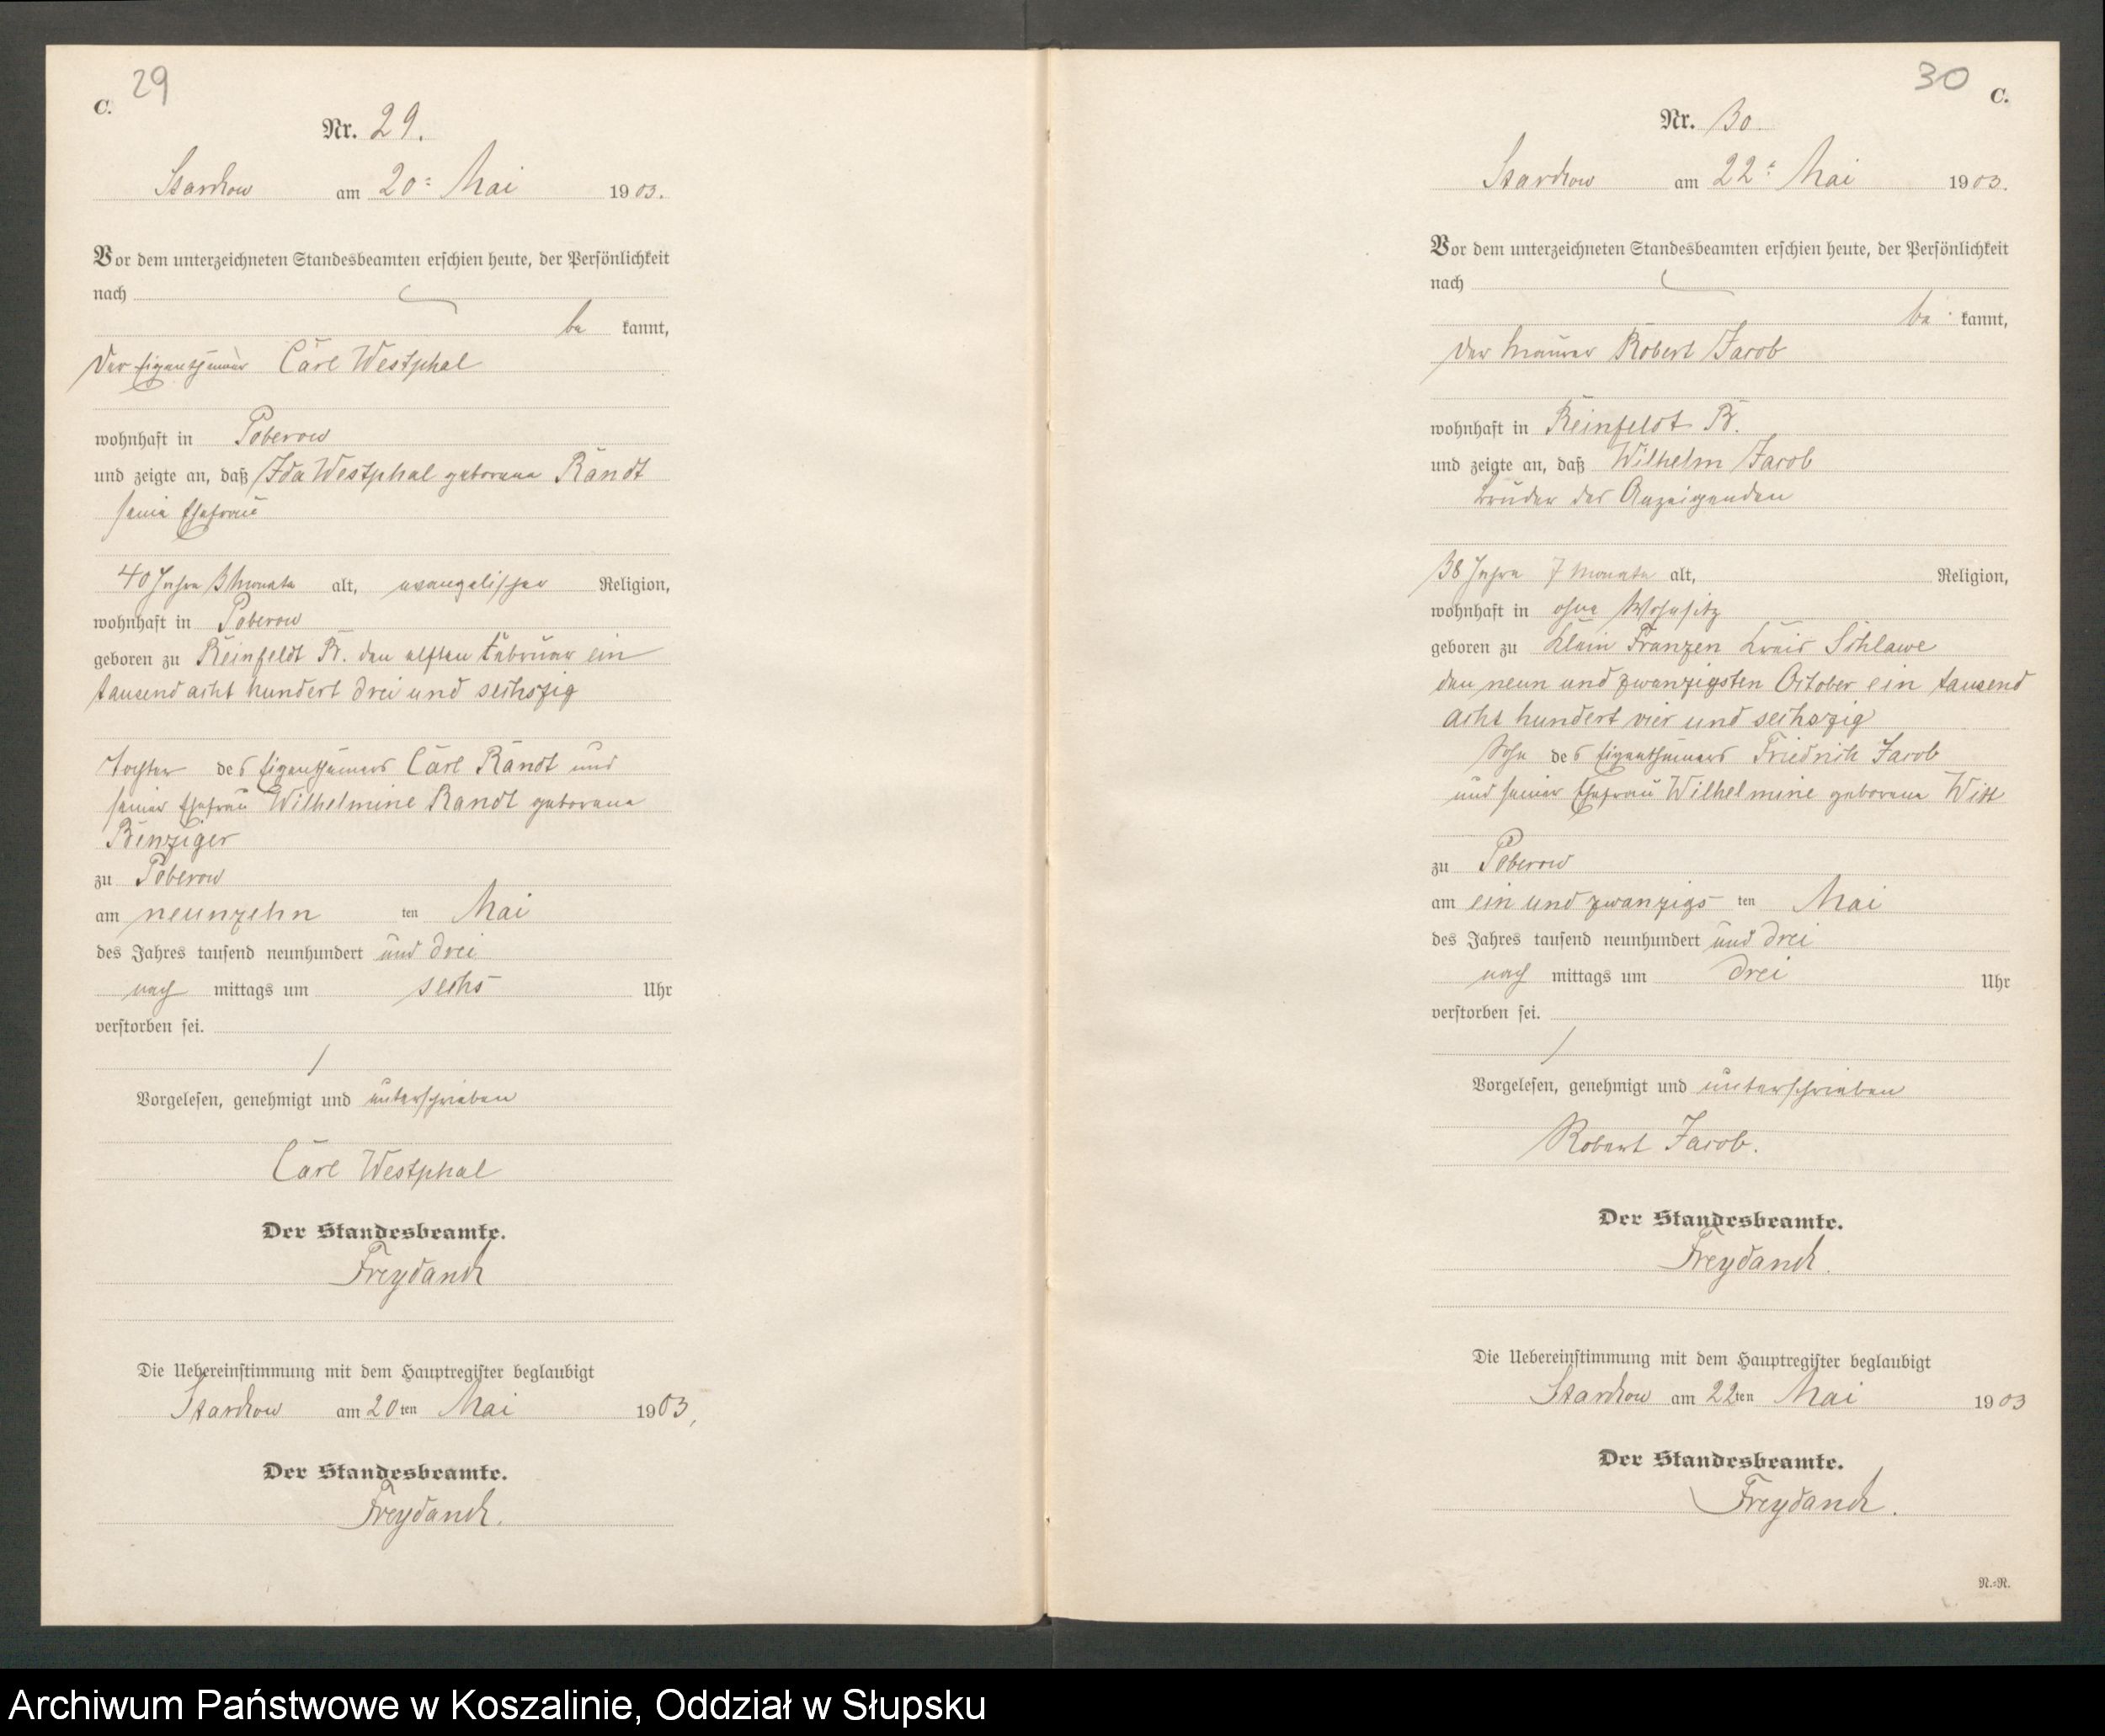 29
C.
Nr. 29.
Starckow am 20ᵗ Mai 1903.
Vor dem unterzeichneten Standesbeamten erschien heute, der Persönlichkeit
nach
be kannt,
der Eigenthümer Carl Westphal
wohnhaft in Poberow
und zeigte an, daß Ida Westphal geborene Randt
seine Ehefrau
40 Jahre 3 Monate alt, evangelischer Religion,
wohnhaft in Poberow
geboren zu Reinfeldt B. den elften Februar ein
tausend acht hundert drei und sechszig
Tochter des Eigenthümers Carl Randt und
seiner Ehefrau Wilhelmine Randt geborene
Benziger
zu Poberow
am neunzehn ten Mai
des Jahres tausend neunhundert und drei
nach mittags um sechs Uhr
verstorben sei.
Vorgelesen, genehmigt und unterschrieben
Carl Westphal
Der Standesbeamte.
Freydanck
Die Uebereinstimmung mit dem Hauptregister beglaubigt
Starckow am 20ten Mai 1903,
Der Standesbeamte.
Freydanck.
30
C.
Nr. 30.
Starckow am 22ᵗ Mai 1903.
Vor dem unterzeichneten Standesbeamten erschien heute, der Persönlichkeit
nach
be kannt,
der Maurer Robert Jacob
wohnhaft in Reinfeldt B.
und zeigte an, daß Wilhelm Jacob
Bruder des Anzeigenden
38 Jahre 7 Monate alt, Religion,
wohnhaft in ohne Wohnsitz
geboren zu Klein Franzen Kreis Schlawe
den neun und zwanzigsten October ein tausend
acht hundert vier und sechszig
Sohn des Eigenthümers Friedrich Jacob
und seiner Ehefrau Wilhelmine geborene Witt
zu Poberow
am ein und zwanzigs ten Mai
des Jahres tausend neunhundert und drei
nach mittags um drei Uhr
verstorben sei.
Vorgelesen, genehmigt und unterschrieben
Robert Jacob.
Der Standesbeamte.
Freydanck.
Die Uebereinstimmung mit dem Hauptregister beglaubigt
Starckow am 22ten Mai 1903
Der Standesbeamte.
Freydanck.
N.=R.
Archiwum Państwowe w Koszalinie, Oddział w Słupsku